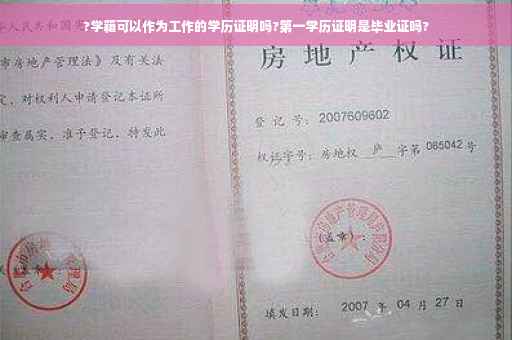 ?学籍可以作为工作的学历证明吗?第一学历证明是毕业证吗?
华人民共和国宪
市房地产管理法》及有关法
定，对权利人申请登记本证所
审查属实，准予登记，特发此
房地产权证
登记号：2007609602
权证字号：房地权 庐 字第 085042 号
(盖章)：
填发日期：2007 年 04 月 27 日